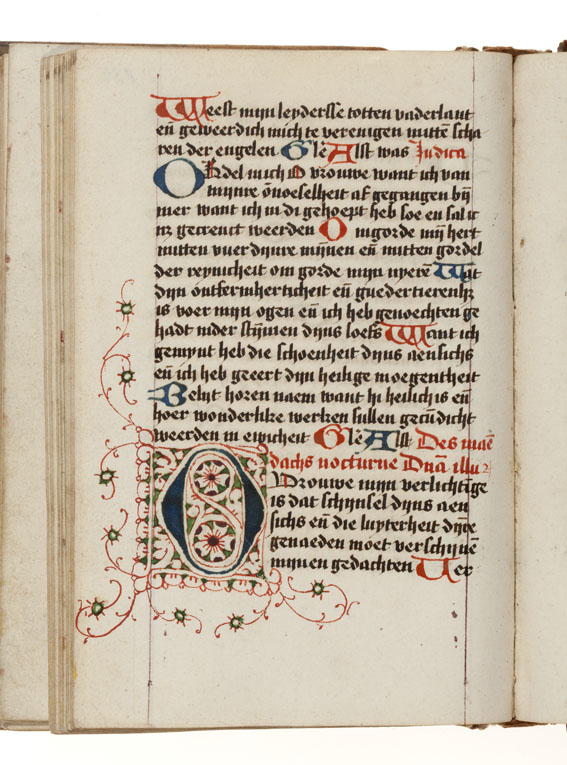 Weest mijn leyderssẽ totten vaderlant
eñ geweerdich mich te verenigen mittẽ scha
ren der engelen Glẽ Alst was Judica
Ordel mich O vrouwe want ich van
mijnre õnoeselheit af gegangen bij
mer want ich in di gehoept heb soe en sal ic
nz gecrenct weerden Omgorde mij hert
mitten vuer dijnre mijnen eñ mitten gordel
der reynicheit om gorde mijn nyerẽ Wãt
dijn õntfermherticheit eñ guedertierenhz
is voer mijn ogen eñ ich heb genoechten ge
hadt inder stijmen dijns loefs Want ich
gemynt heb die schoenheit dijns aensichs
eñ ich heb geeert dijn heilige moegentheit
Belijt horen naem want hi heilich is eñ
hoer wonderlike werken sullen gecũdicht
weerden in ewicheit Glẽ Alst Des maẽ
dachs nocturne Dñã illu
O Vrouwe mijn verlichtige
is dat schijnsel dijns aen
sichs eñ die luyterheit dijnẽ
genaeden moet verschijnẽ
mijnen gedachten Ver